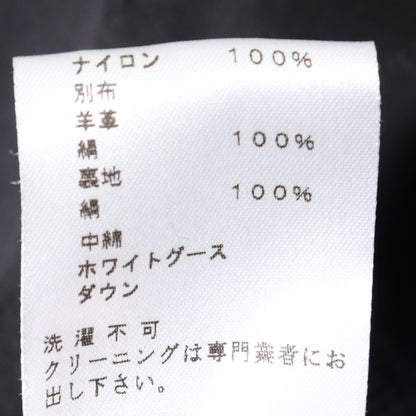 ナイロン 100%
別布
羊革
絹 100%
裏地
絹 100%
中綿
ホワイトグース
ダウン
洗濯不可
クリーニングは専門業者にお
出し下さい。